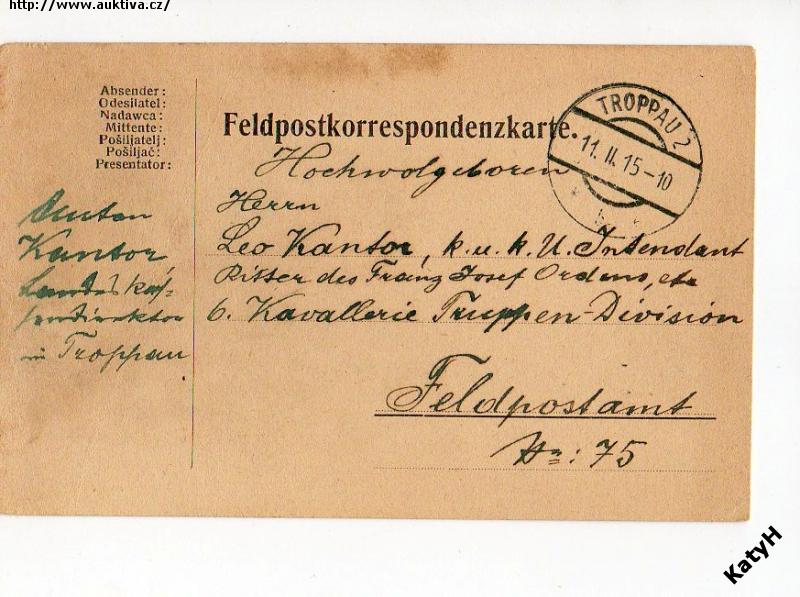 http://www.auktiva.cz/
Absender:
Odesilatel:
Nadawca:
Mittente:
Pošiljatelj:
Pošiljač:
Presentator:
Feldpostkorrespondenzkarte.
TROPPAU 2
11. II. 15-10
Hochwolgeboren
Herrn
Leo Kantor, k. u. k. U. Intendant
Ritter des Franz Josef Ordens, etc
6. Kavallerie Truppen-Division
Feldpostamt
Nr: 75
Anton
Kantor
Landeskas-
sendirektor
in Troppau
KatyH